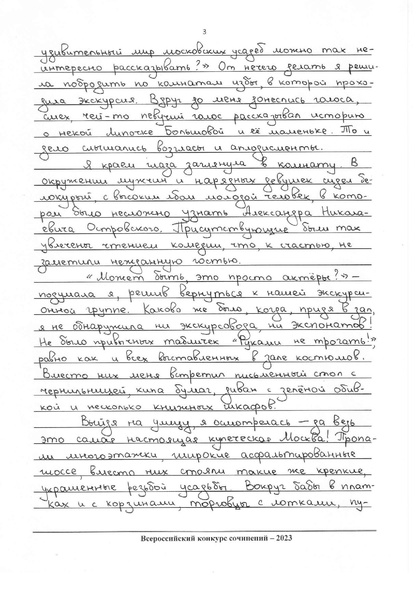 3
удивительный мир московских усадеб можно так не-
интересно рассказывать?» От нечего делать я реши-
ла побродить по комнатам избы, в которой прохо-
дила экскурсия. Вдруг до меня донеслись голоса,
смех, чей-то певучий голос рассказывал историю
о некой Липочке Большовой и её маменьке. То и
дело слышались возгласы и аплодисменты.
Я краем глаза заглянула в комнату. В
окружении мужчин и нарядных девушек сидел бе-
локурый с высоким лбом молодой человек, в кото-
ром было несложно узнать Александра Никола-
евича Островского. Присутствующие были так
увлечены чтением комедии, что, к счастью, не
заметили нежданную гостью.
«Может быть, это просто актёры?» –
подумала я, решив вернуться к нашей экскурси-
онной группе. Каково же было, когда, придя в зал,
я не обнаружила ни экскурсовода, ни экспонатов!
Не было привычных табличек "Руками не трогать!",
равно как и всех выставленных в зале костюмов.
Вместо них меня встретил письменный стол с
чернильницей, кипа бумаг, диван с зелёной обив-
кой и несколько книжных шкафов.
Выйдя на улицу, я осмотрелась – да ведь
это самая настоящая купеческая Москва! Пропа-
ли многоэтажки, широкие асфальтированные
шоссе, вместо них стояли такие же крепкие,
украшенные резьбой усадьбы. Вокруг бабы в плат-
ках и с корзинами, торговцы с лотками, пу-
Всероссийский конкурс сочинений – 2023